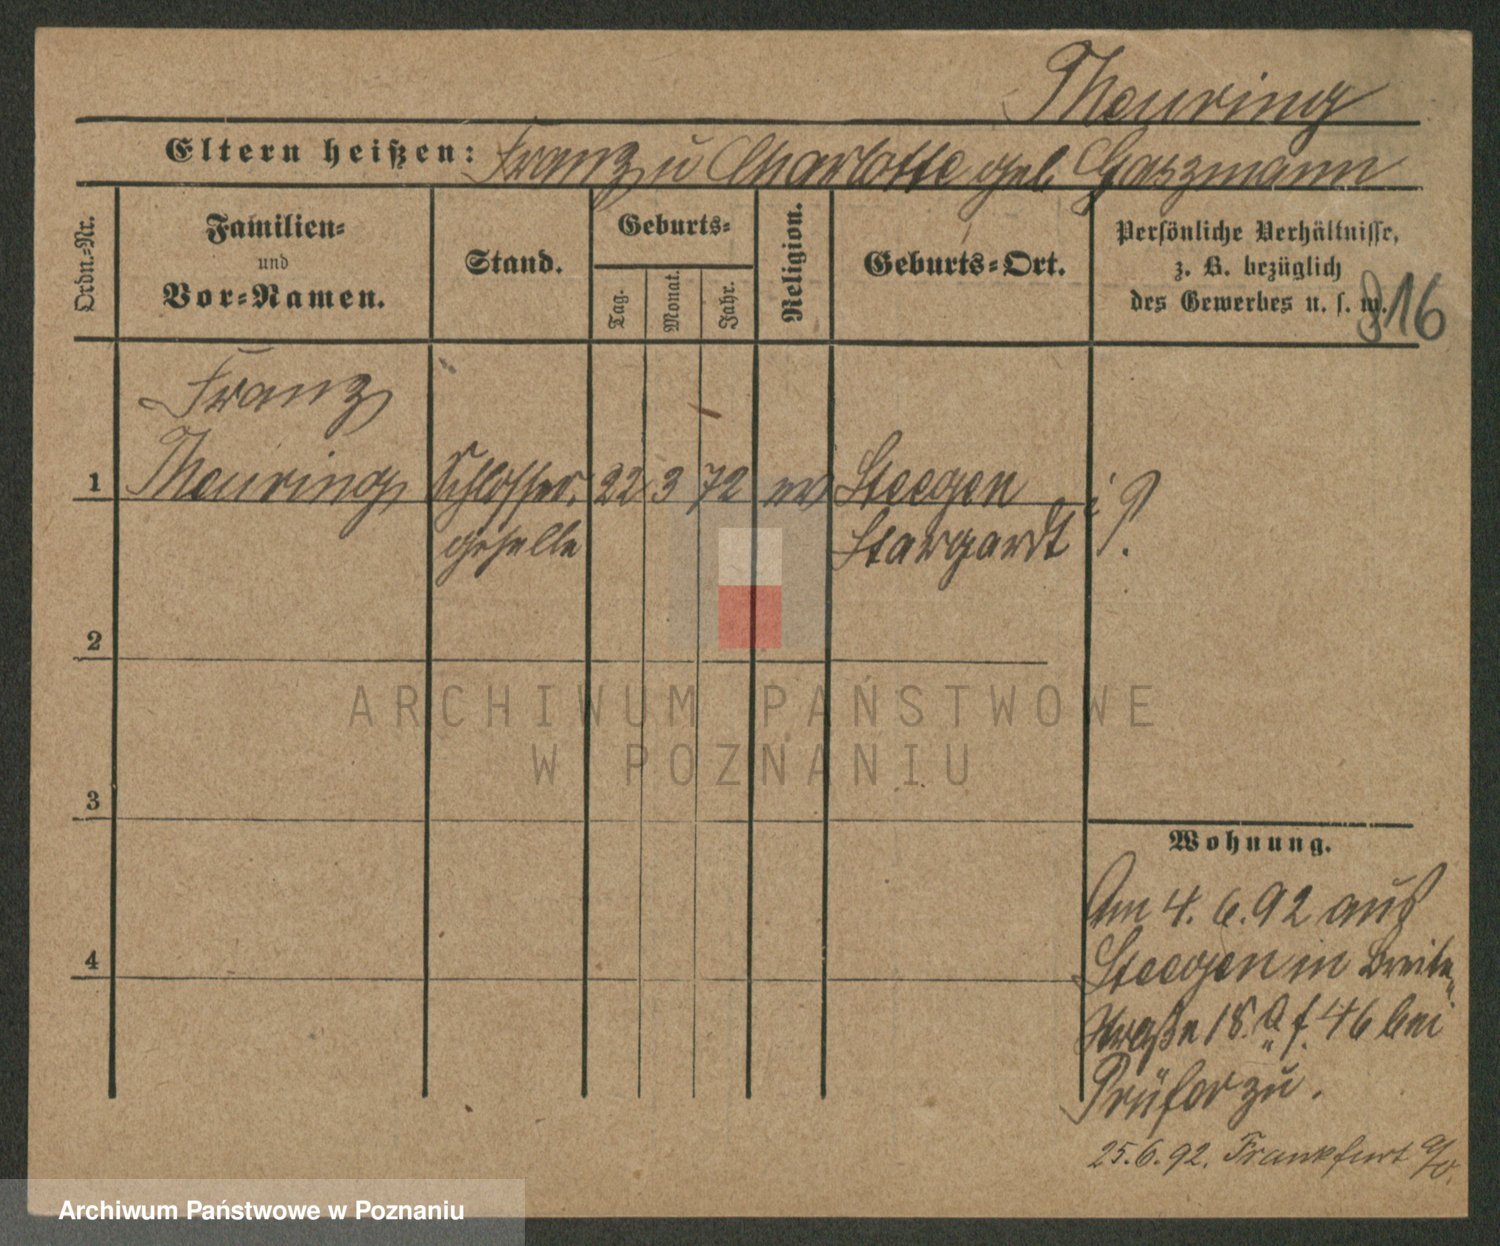 Theuring
Eltern heißen: Franz u Charlotte geb. Gaszmann
Ordn.-Nr.
Familien-
und
Vor-Namen.
Stand.
Geburts-
Tag.
Monat.
Jahr.
Religion.
Geburts-Ort.
Persönliche Verhältnisse,
z. B. bezüglich
des Gewerbes u. s. w.
916
Franz
1 Theuring Schlosser- 22 3 72 ev Steegen
geselle Stargardt i/P.
2
3
4
ARCHIWUM PAŃSTWOWE
W POZNANIU
Wohnung.
Am 4. 6. 92 aus
Steegen in Breite-
straße 18.a f. 46 bei
Prüfer zu.
25.6.92. Frankfurt a/O.
Archiwum Państwowe w Poznaniu